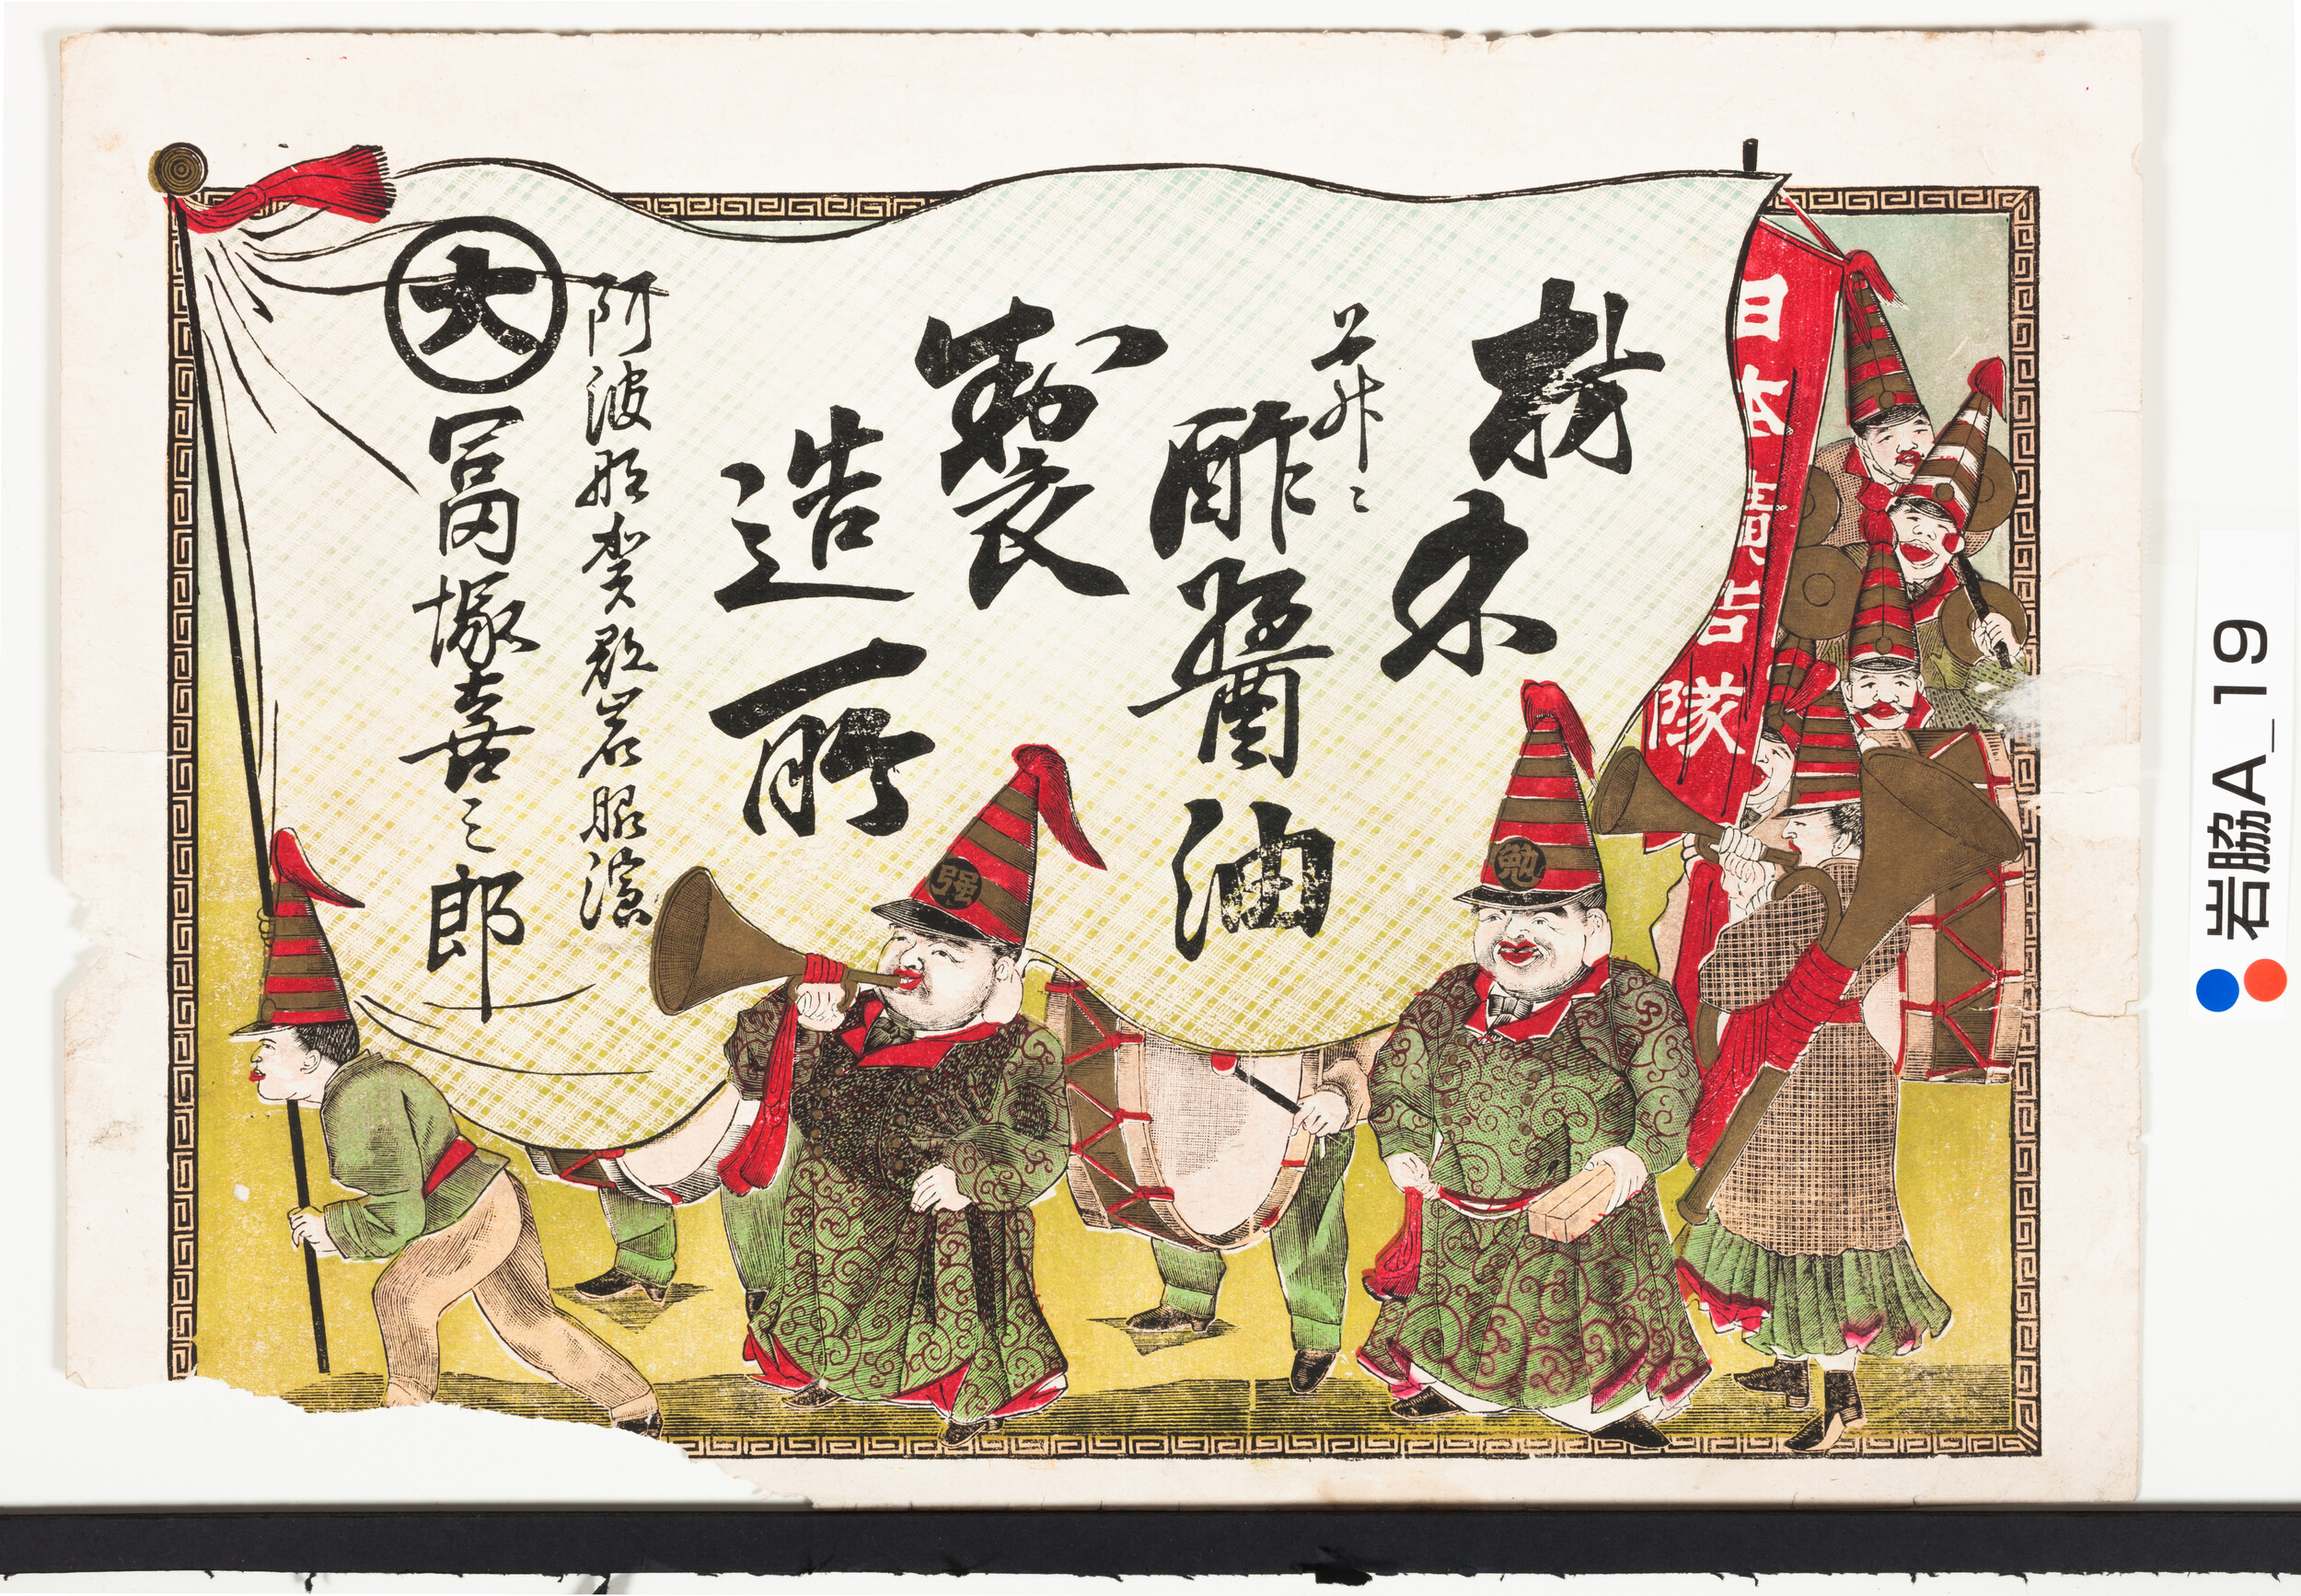 日本廣告隊
米
并ニ
酢醤油
製造所
阿波那賀郡岩脇濱
大
冨塚喜三郎
勉
強
岩脇A_19